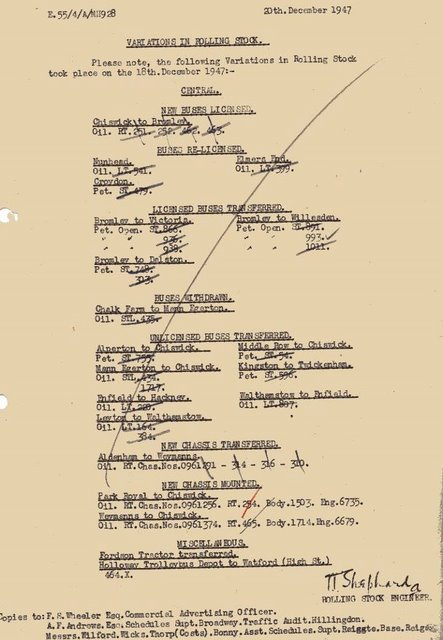 E.55/4/A/MH928 20th.December 1947
VARIATIONS IN ROLLING STOCK.
Please note, the following Variations in Rolling Stock
took place on the 18th.December 1947:-
CENTRAL.
NEW BUSES LICENSED.
Chiswick to Bromley.
Oil. RT.251. 252. 462. 463.
BUSES RE-LICENSED.
Nunhead. Elmers End.
Oil. LT.541. Oil. LT.399.
Croydon.
Pet. ST.479.
LICENSED BUSES TRANSFERRED.
Bromley to Victoria. Bromley to Willesden.
Pet. Open. ST.866. Pet. Open. ST.891.
" " 936. " " 993.
" " 938. " " 1011.
Bromley to Dalston.
Pet. ST.748.
303.
BUSES WITHDRAWN.
Chalk Farm to Mann Egerton.
Oil. STL.435.
UNLICENSED BUSES TRANSFERRED.
Alperton to Chiswick. Middle Row to Chiswick.
Pet. ST.795. Pet. ST.54.
Mann Egerton to Chiswick. Kingston to Twickenham.
Oil. STL.434. Pet. ST.596.
1717.
Enfield to Hackney. Walthamstow to Enfield.
Oil. LT. Oil. LT.807.
Leyton to Walthamstow.
Oil. LT.164.
384.
NEW CHASSIS TRANSFERRED.
Aldenham to Weymanns.
Oil. RT.Chas.Nos.0961291 - 314 - 316 - 310.
NEW CHASSIS MOUNTED.
Park Royal to Chiswick.
Oil. RT.Chas.Nos.0961256. RT.254. Body.1503. Eng.6735.
Weymanns to Chiswick.
Oil. RT.Chas.Nos.0961374. RT.465. Body.1714. Eng.6679.
MISCELLANEOUS.
Fordson Tractor transferred.
Holloway Trolleybus Depot to Watford (High St.)
464.X.
Shephard
ROLLING STOCK ENGINEER.
Copies to: F.H.Wheeler Esq.Commercial Advertising Officer.
A.F.Andrews.Esq.Schedules Supt.Broadway.Traffic Audit.Hillingdon.
Messrs.Wilford.Wicks.Thorp(Costs).Bonny.Asst.Schedules.Supt.Reigate.Base.Reigate